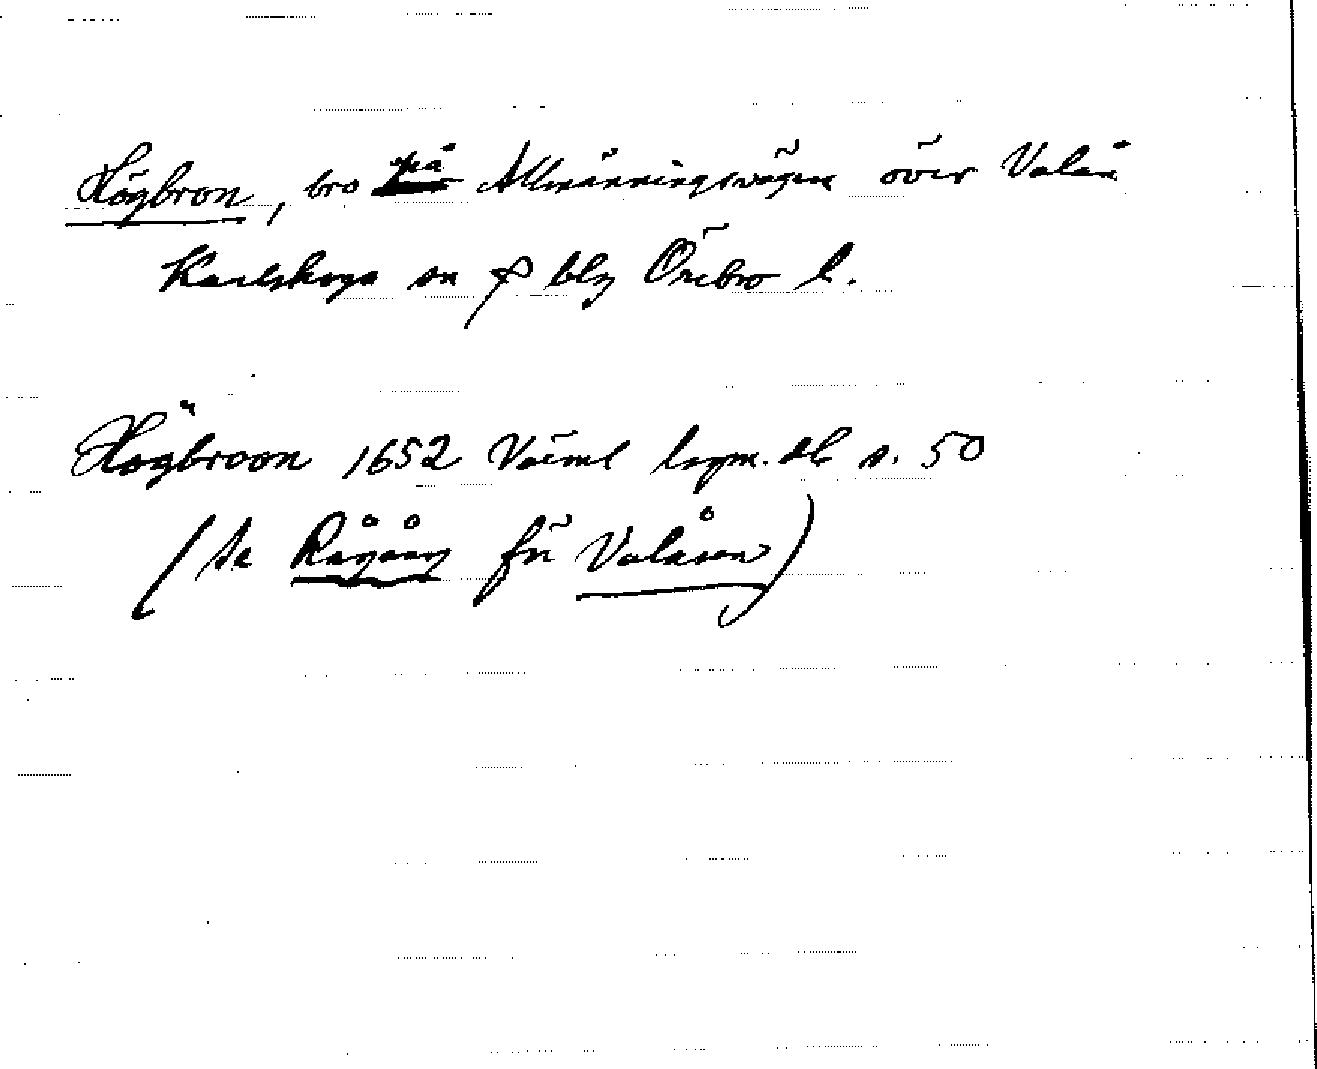 Högbron, bro på Allmänningsvägen över Valån
Karlskoga sn o blg Örebro l.
Högbroon 1652 Värml lspm. db s. 50
(se Rågång för Valåsen)